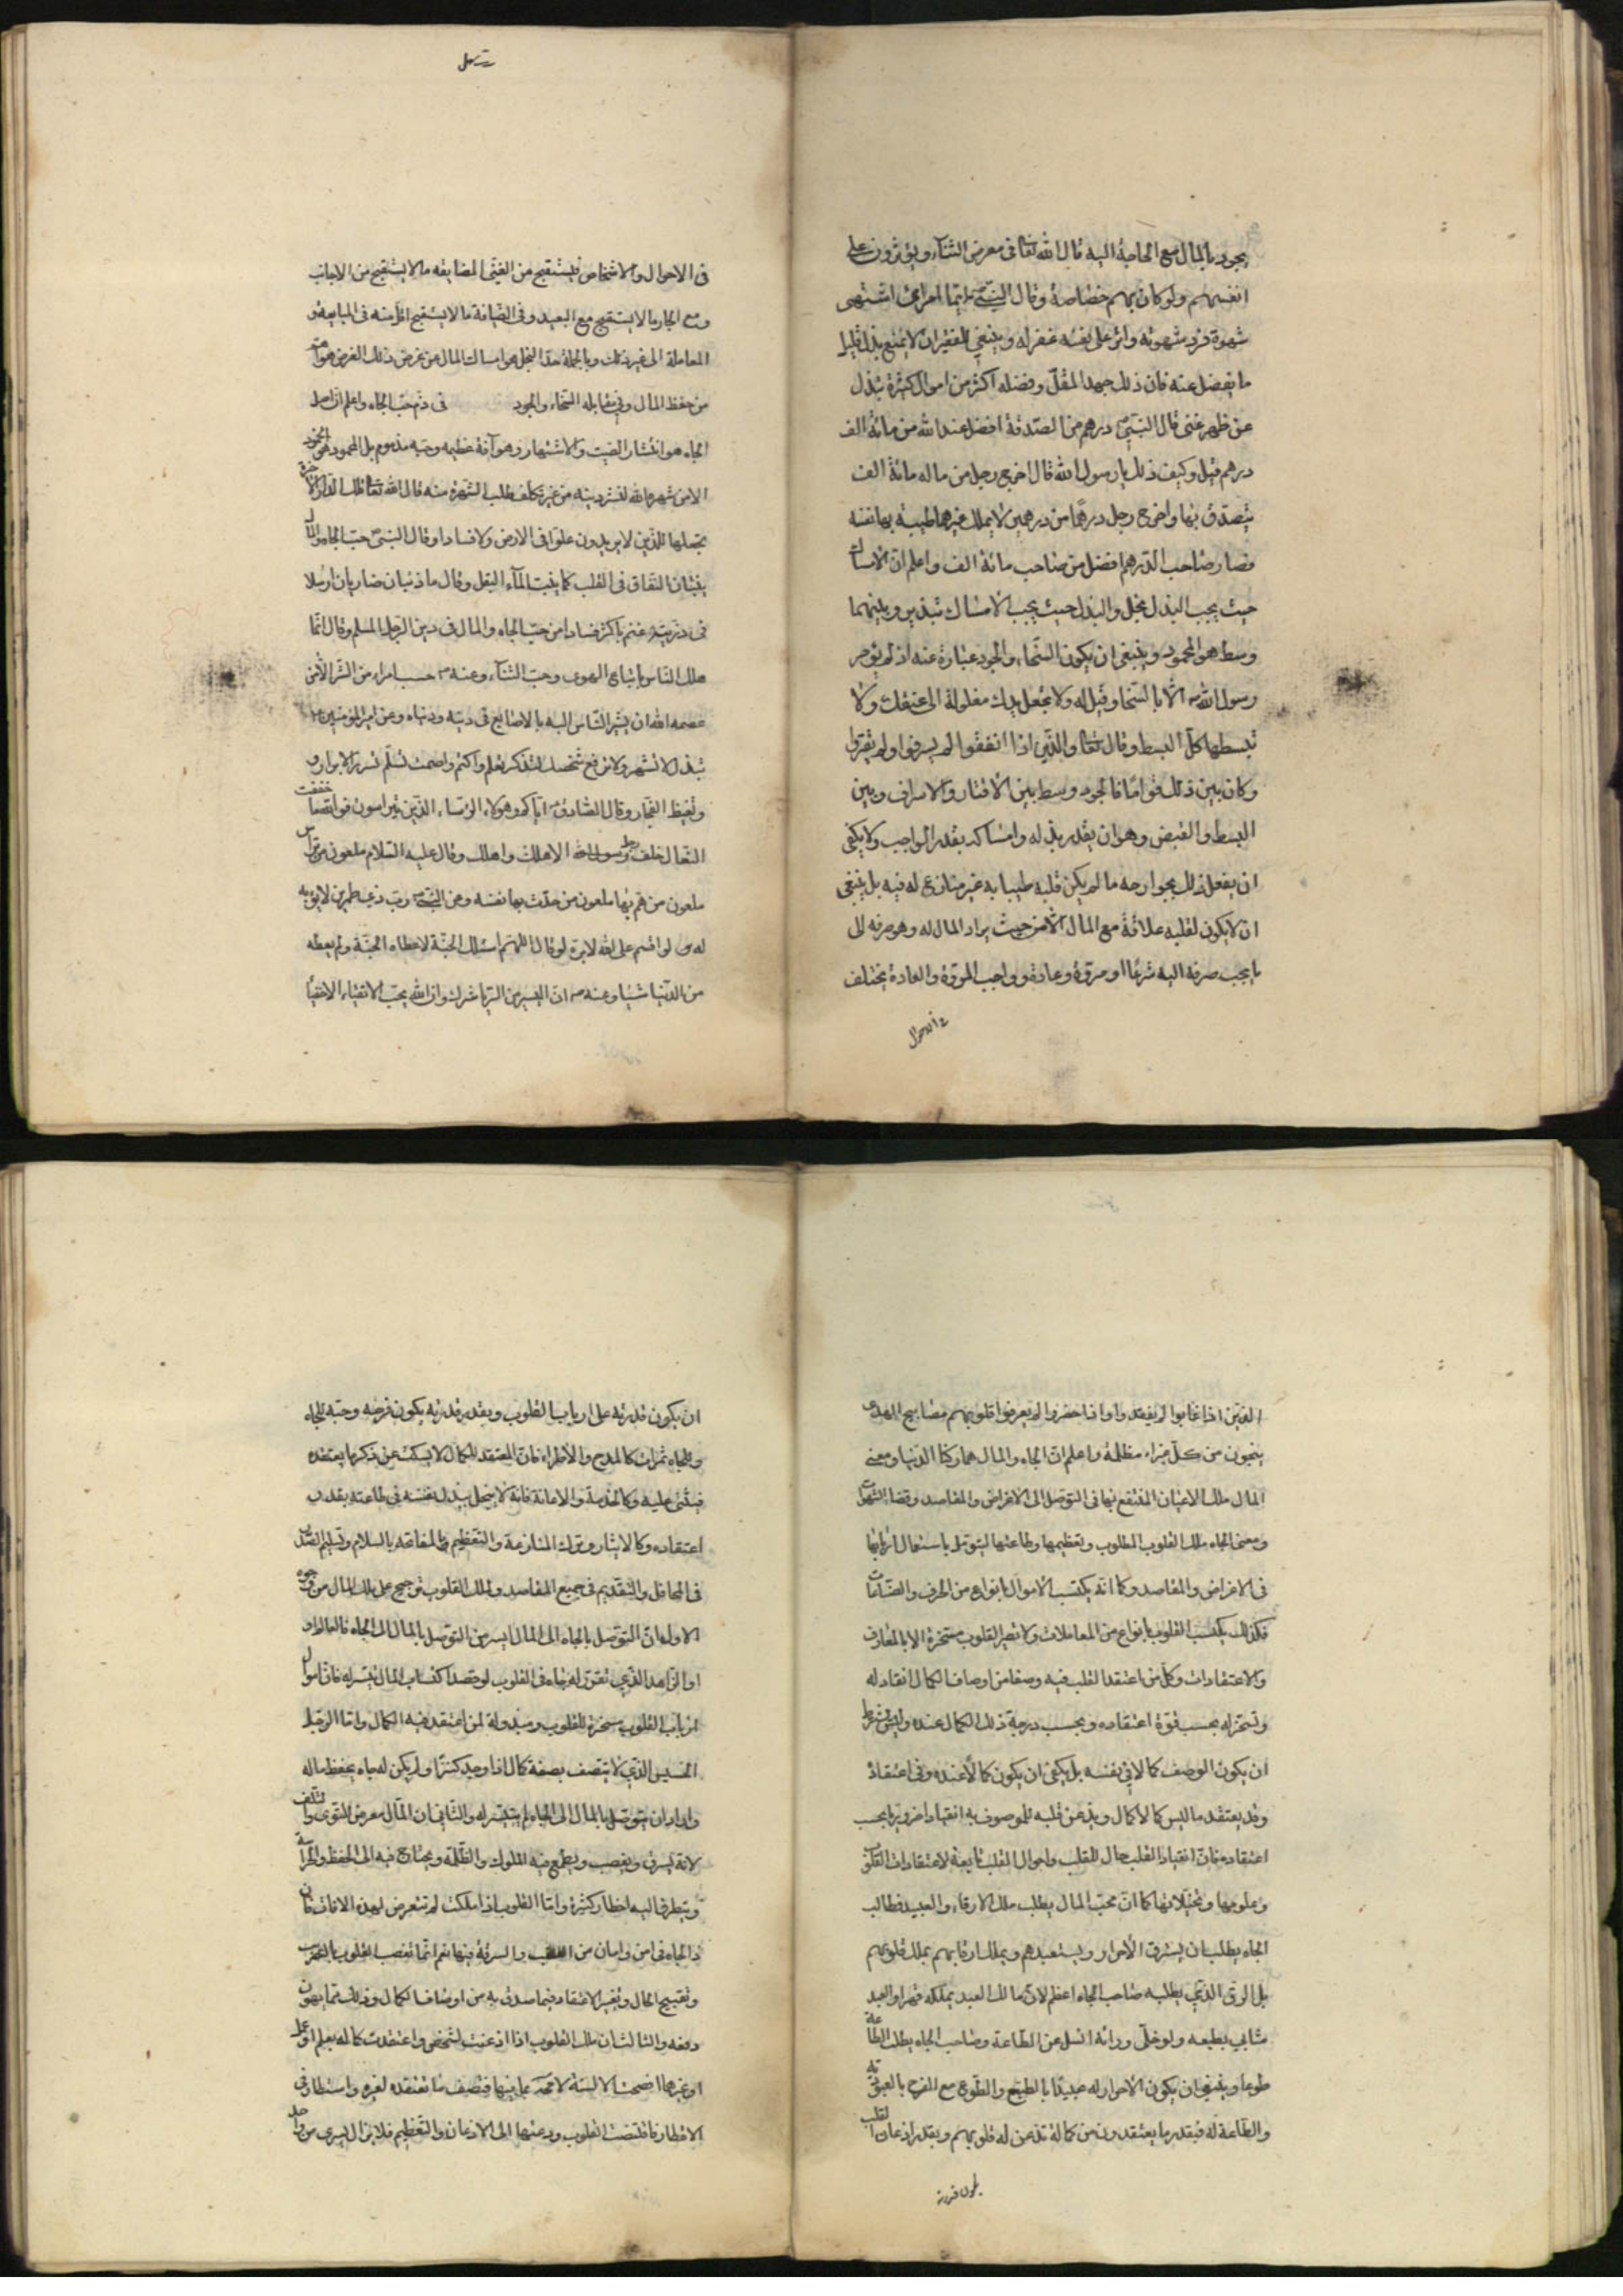 يجود بالمال مع الحاجة اليه قال الله تعالى فى معرض الثنآء ويؤثرون على
انفسهم ولو كان بهم خصاصة وقال النبىّ ايّما امرئ اشتهى
شهوة فردّ شهوته واثر على نفسه غفر له وينبغى للفقير ان لا يمنع بذل قليل
ما يفضل عنه فان ذلك جهد المقلّ وفضله اكثر من اموال كثيرة تبذل
عن ظهر غنى قال النبىّ درهم من الصّدقة افضل عند الله من مائة الف
درهم قيل وكيف ذلك يا رسول الله قال اخرج رجل من ماله مائة الف
يتصدّق بها واخرج رجل درهما من درهمين لا يملك غيرهما طيبة بها نفسه
فصار صاحب الدّرهم افضل من صاحب مائة الف واعلم انّ الامساك
حيث يجب البذل بخل والبذل حيث يجب الامساك تبذير وبينهما
وسط هو المحمود وينبغى ان يكون السّخاء والجود عبارة عنه اذ لم يؤمر
رسول الله الّا بالسّخاء وقيل له ولا تجعل يدك مغلولة الى عنقك ولا
تبسطها كلّ البسط وقال تعالى والّذين اذا انفقوا لم يسرفوا ولم يقتروا
وكان بين ذلك قواما فالجود وسط بين الاقتار والاسراف وبين
البسط والقبض وهو ان يقدر بذله وامساكه بقدر الواجب ولا يكفى
ان يفعل ذلك بجوارحه ما لم يكن قلبه طيبا به غير منازع له فيه بل ينبغى
ان لا يكون لقلبه علاقة مع المال الّا من حيث يراد المال له وهو صرفه الى
ما يجب صرفه اليه شرعًا او مروّة وعادة وواجب المروّة والعادة يختلف
فى الاحوال
فى الاحوال والاشخاص فيستقبح من الغنى المضايقه ما لا يستقبح من الاجانب
ومع الجار ما لا يستقبح مع البعيد وفى الضيافة ما لا يستقبح اقلّ منه فى المبايعة و
المعاملة الى غير ذلك وبالجملة حدّ البخل هو امساك المال عن غرض ذلك الغرض هو اهم
من حفظ المال وفى مقابله السّخاء والجود فى ذم حبّ الجاه واعلم انّ اصل
الجاه هو انتشار الصّيت والاشتهار وهو آفة عظيمه وحبّه مذموم بل المحمود هو الخمود
الا من شهره الله لنشر دينه من غير تكلّف طلب الشهرة منه قال الله تعالى تلك الدار الآخرة
نجعلها للّذين لا يريدون علوّا فى الارض ولا فسادا وقال النبىّ حبّ الجاه والمال
ينبتان النفاق فى القلب كما ينبت المآء البقل وقال ما ذئبان ضاريان ارسلا
فى زريبة غنم باكثر فسادا من حبّ الجاه والمال فى دين الرجل المسلم وقال انّما
هلك النّاس باتباع الهوى وحبّ الثنآء وعنه حسب امرء من الشّر الّا من
عصمه الله ان يشير النّاس اليه بالاصابع فى دينه ودنياه وعن امير المؤمنين
تبذل لا تشهر ولا ترفع شخصك لتذكر بعلم واكتم واصمت تسلم تسرّ الابرار و
وتغيظ الفجّار وقال الصّادق ايّاكم وهؤلاء الرّؤساء الّذين يترأسون فو الله ما خفقت
النّعال خلف رجل الا هلك واهلك وقال عليه السّلام ملعون من ترأس
ملعون من همّ بها ملعون من حدّث بها نفسه وعن النبىّ ربّ ذى طمرين لا يؤبه
له لو اقسم على الله لابرّه لو قال اللهمّ اسئلك الجنّة لاعطاه الجنّة ولم يعطه
من الدّنيا شيئا وعنه انّ اليسير من الرّيا شرك وان الله يحبّ الاتقياء الاخفياء
الّذين اذا غابوا لم يفقدوا واذا حضروا لم يعرفوا قلوبهم مصابيح الهدى
ينجون من كلّ غبراء مظلمة واعلم انّ الجاه والمال هما ركنا الدّنيا ومعنى
المال ملك الاعيان المنتفع بها فى التوصّل الى الاغراض والمقاصد وقضاء الشهوات
ومعنى الجاه ملك القلوب المطلوب وتعظيمها وطاعتها ليتوصّل باستعمال اربابها
فى الاغراض والمقاصد وكما انّه يكتسب الاموال بانواع من الحرف والصّناعات
فكذلك يكتسب القلوب بانواع من المعاملات ولا تصير القلوب مسخّرة الا بالمعارف
والاعتقادات وكلّ من اعتقد القلب فيه وصفا من اوصاف الكمال انقاد له
وتسخّر له بحسب قوّة اعتقاده وبحسب درجة ذلك الكمال عنده وليس يشترط
ان يكون الوصف كمالا فى نفسه بل يكفى ان يكون كمالًا عنده وفى اعتقاده
وقد يعتقد ما ليس كمالا كمال ويذعن قلبه للموصوف به انقيادا ضروريّا بحسب
اعتقاده فان انقياد القلب حال للقلب واحوال القلب تابعة لاعتقادات القلوب
وعلومها وتخيّلاتها كما انّ محبّ المال يطلب ملك الارقاء والعبيد فطالب
الجاه يطلب ان يسترق الاحرار ويستعبدهم ويملك رقابهم بملك قلوبهم
بل الرق الّذى يطلبه صاحب الجاه اعظم لانّ مالك العبد يملكه قهرا والعبد
متأبى بطبعه ولو خلّى ورأيه انسل عن الطّاعة وصاحب الجاه يطلب الطاعة
طوعا وينبغى ان يكون الاحرار له عبيدًا بالطبع والطّوع مع الفرح بالعبوديّة
والطّاعة له فبقدر ما يعتقدون من كماله تذعن له قلوبهم وبقدر اذعان القلب
يكون قدرته
ان يكون قدرته على ارباب القلوب وبقدر قدرته يكون فرحه وحبّه للجاه
وللجاه ثمرات كالمدح والاطراء فانّ المعتقد للكمال لا يسكت عن ذكر ما يعتقده
فيثنى عليه وكالخدمة والاعانة فانّه لا يبخل ببذل نفسه فى طاعته بقدر
اعتقاده وكالايثار وترك المنازعة والتّعظيم والمفاتحه بالسلام وتسليم الصّدر
فى المحافل والتّقديم فى جميع المقاصد ولملك القلوب ترجيح على ملك المال من وجوه
الاول انّ التوصّل بالجاه الى المال ايسر من التوصّل بالمال الى الجاه فالعالم
او الزّاهد الّذى تقرّر له جاه فى القلوب لو قصد اكتساب المال تيسّر له فانّ اموال
ارباب القلوب مسخرة للقلوب ومبذولة لمن اعتقد فيه الكمال وامّا الرجل
الخسيس الّذى لا يتّصف بصفة كمال اذا وجد كنزًا ولم يكن له جاه يحفظ ماله
واراد ان يتوصّل بالمال الى الجاه لم يتيسّر له والثّانى انّ المال معرض للتوى والتلف
لانّه يسرق ويغصب ويطمع فيه الملوك والظّلمة ويحتاج فيه الى الحفظ والحراسة
ويتطرق اليه اخطار كثيرة وامّا القلوب اذا ملكت لم تتعرض لهذه الافات فان
ذا الجاه فى امن وامان من الغصب والسرقة فيها نعم انّما تغصب القلوب بالتضريب
وتقبيح الحال وتغيير الاعتقاد فيما صدق به من اوصاف الكمال وذلك ممّا يهون
دفعه والثالث ان ملك القلوب اذا اذعنت لشخص واعتقدت كماله بعلم او عمل
او غيرهما افصحت الالسنة لا محة بما فيها فتصف ما تعتقده لغيره واستطار فى
الاقطار فاقتنصت القلوب ودعتها الى الاذعان والتّعظيم فلا يزال يسرى من واحد